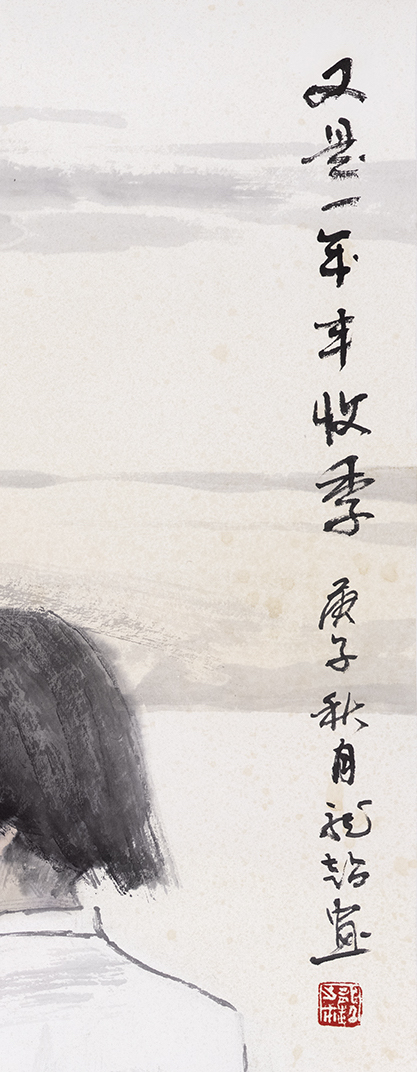 又是一年丰收季 庚子秋月龙超画